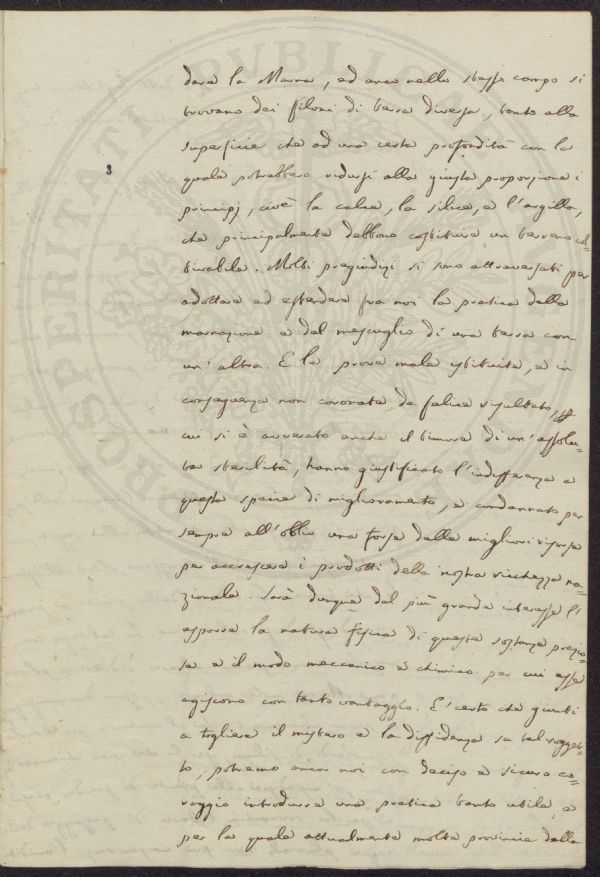 dara la Marna, ed anco nello stesso campo si
trovano dei filoni di terra diversa, tanto alla
superficie che ad una certa profondità con la
quale potrebbero ridursi alla giusta proporzione i
principj, cioè la calce, la silice, e l'argilla,
che principalmente debbono costituire un terreno col=
tivabile. Molti pregiudizj si sono attraversati per
adottare ed estendere fra noi la pratica della
marnazione e del mescuglio di una terra con
un'altra. E le prove male istituite, e in
conseguenza non coronate da felice resultato,
cui si è avverato anche il timore di un'assolu=
ta sterilità, hanno giustificato l'indifferenza a
questa specie di miglioramento, e condannato per
sempre all'oblio una forse delle migliori risorse
per accrescere i prodotti della nostra ricchezza na=
zionale. Sarà dunque del più grande interesse l'
esporre la natura fisica di questa sostanza prezio=
sa e il modo meccanico e chimico per cui essa
agiscono con tanto vantaggio. E' certo che giunti
a togliere il mistero e la diffidenza su tal sogget=
to, potremo ancor noi con deciso e sicuro co=
raggio introdurre una pratica tanto utile, e
per la quale attualmente molte provincie della
3
PROSPERITATI PUBLICAE